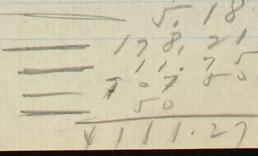 5.18
178.21
11.75
707 50
50
111.27